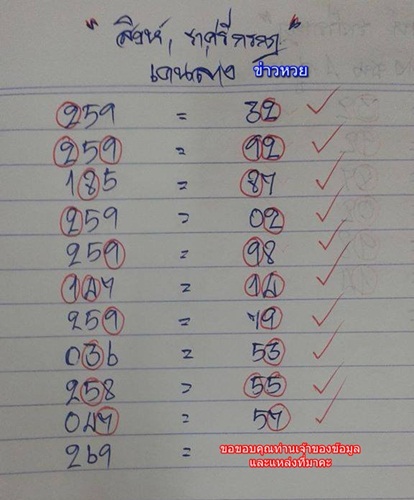 " สิงห์, ราศรีกรกฎ "
ข่าวหวย
259 = 32
259 = 92
185 = 87
259 = 02
259 = 98
147 = 14
259 = 19
036 = 53
258 = 55
047 = 57
269 =
ขอขอบคุณท่านเจ้าของข้อมูล
และแหล่งที่มาคะ